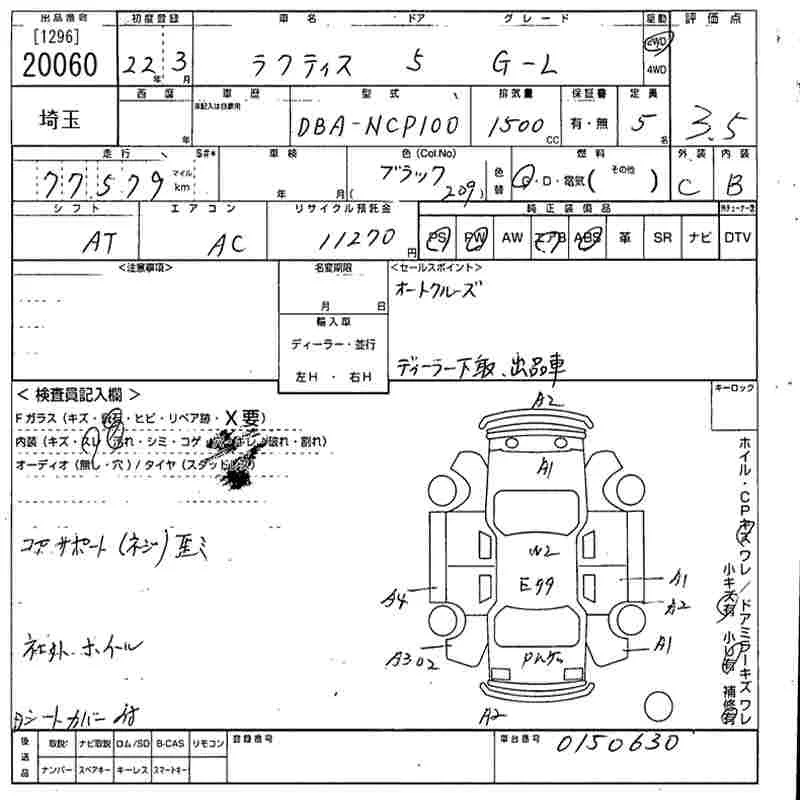 出品番号 初度登録 車名 ドア グレード 駆動 評価点
[1296]
20060 22年 3月 ラクティス 5 G-L 2WD
4WD
3.5
西暦 車歴 型式 排気量 保証書 定員
未記入は自家用
埼玉 年 DBA-NCP100 1500cc 有・無 5名
走行 S#* 車検 色(Col.No) 燃料 外装 内装
77,579 マイル km 年 月 ブラック (209) 色替 G・D・電気( その他 ) C B
シフト エアコン リサイクル預託金 純正装備品
AT AC 11270円 PS PW AW エアB ABS 革 SR ナビ DTV
<注意事項> 名変期限 <セールスポイント>
月 日 オートクルーズ
輸入車
ディーラー・並行
左H・右H ディーラー下取、出品車
<検査員記入欄> キーロック
Fガラス(キズ・飛石・ヒビ・リペア跡・X要)
内装(キズ・スレ・汚れ・シミ・コゲ・穴・キレ・破れ・割れ)
オーディオ(無し・穴)/タイヤ(スタッドレス)
コアサポート(ネジ)歪ミ
社外ホイール
シートカバー付
A2
A1
W2
E99
A4
A1
A2
A1
A2
ホイル・CPキズワレ/ドアミラーキズワレ
小キズ有 小凹有 補修有
後送品 取説 ナビ取説 ロム/SD B-CAS リモコン 登録番号 車台番号 0150630
ナンバー スペアキー キーレス スマートキー